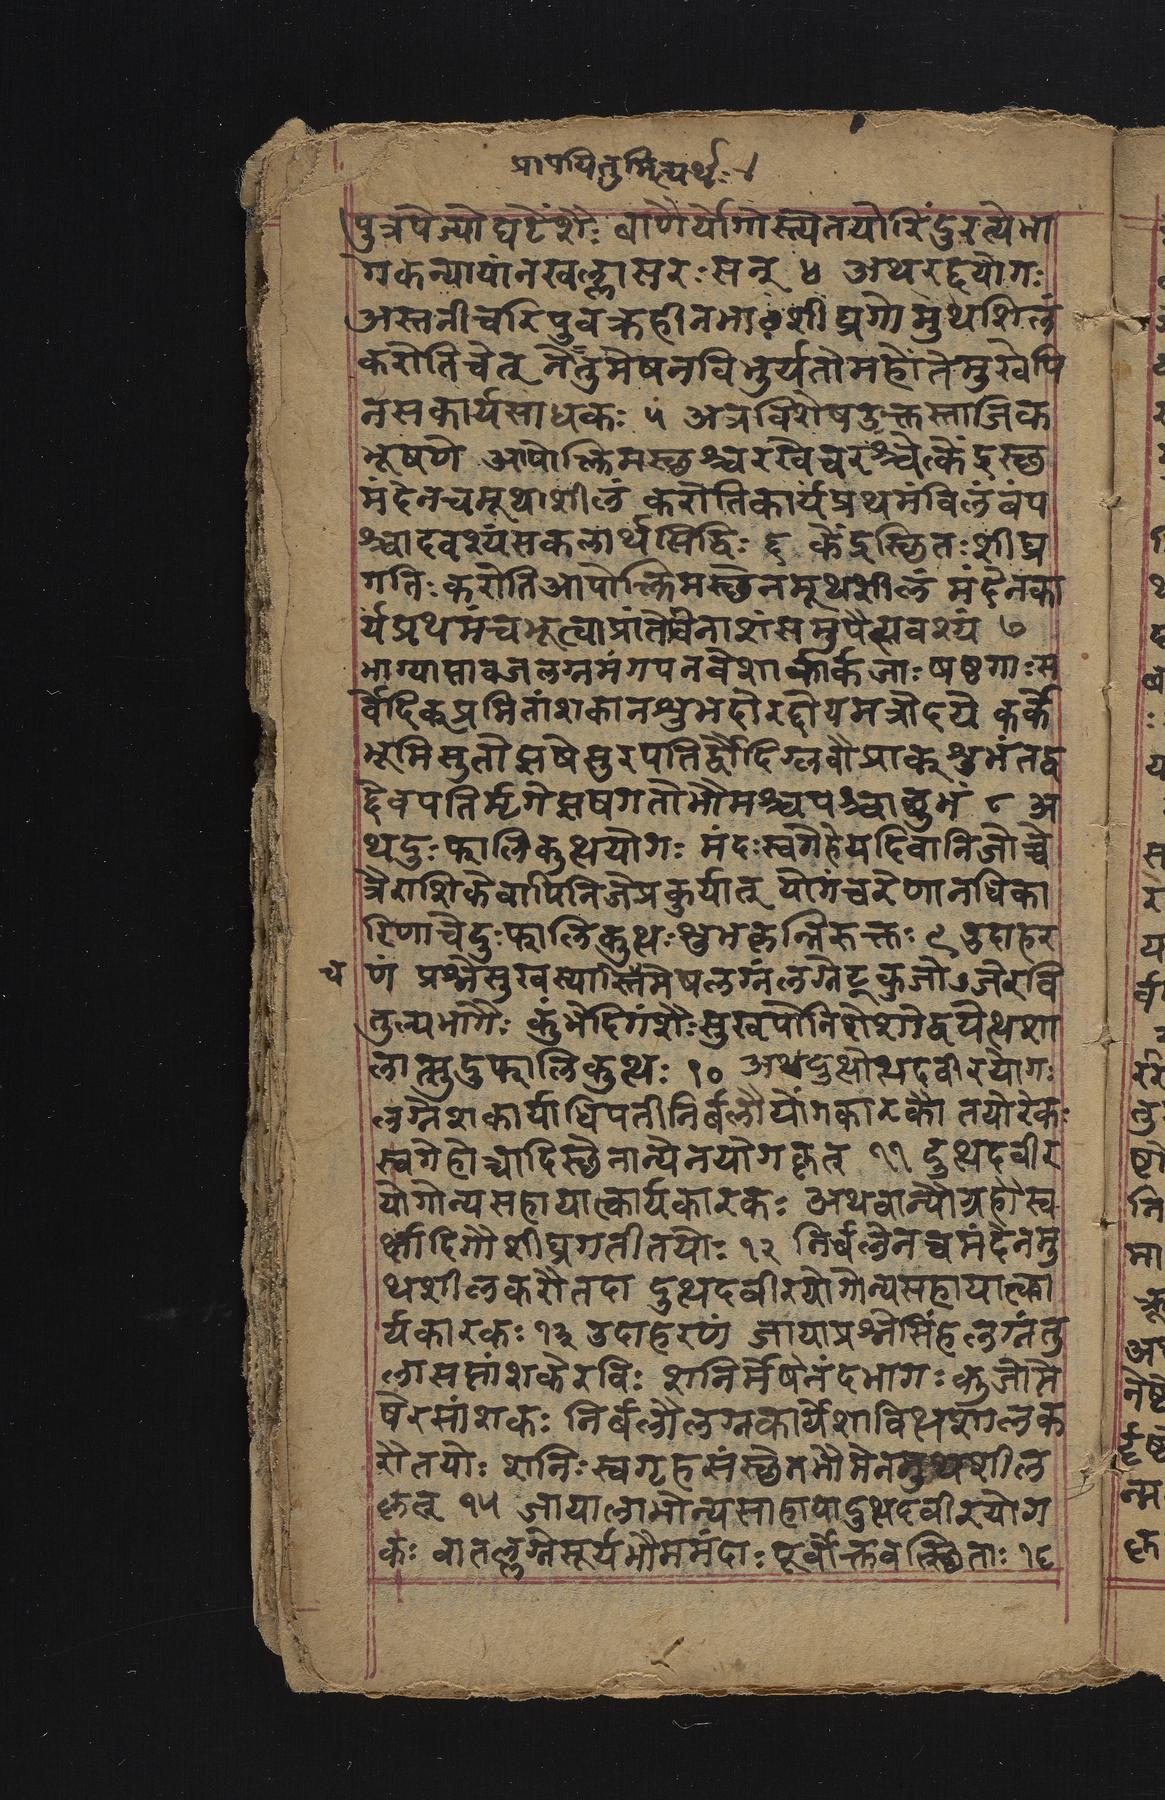 प्रापयितुमित्यर्थः
पुत्रपेज्यो घटेंशैः वाणैर्योगोस्त्येतयोरिंदुरत्येभा
गकन्यायांनखल्लासरःसन् ४ अथरद्दयोगः
अस्तनीचरिपुवक्रहीनभा शीघ्रगो मुथशिलं
करोतिचेत् नेतुमेषनविभुर्यतोमहोंतेमुखेपि
नसकार्यसाधकः ५ अत्रविशेषउक्तस्ताजिक
भूषणे आपोक्लिमस्छश्चरखेचरश्चेत्केंद्रस्छ
मंदेनचमूथाशीलं करोतिकार्यंप्रथमंविलंबंप
श्चादवश्यंसकलार्थसिद्धिः ६ केंद्रस्छितःशीघ्र
गतिःकरोतिआपोक्लिमस्छेनमूथशीलं मंदेनका
र्यंप्रथमंचभूत्वाप्रांतेविनाशंसमुपैत्यवश्यं ७
भाग्यापावजलग्नमंगपनवेशार्कार्कजाः षष्ठगाःस
र्वेदिक्प्रमितांशकानशुभहोरद्दोयमत्रोदये कर्के
भूमिसुतोझषेसुरपतिर्द्वौदिग्लवौप्राक्शुभंतद्व
द्देवपतिर्मृगेझषगतोभौमश्चपश्चाछुभं ८ अ
थदुःफालिकुत्थयोगः मंदःस्वगेहेयदिवानिजोच्चे
त्रैराशिकेवापिनिजेप्रकुर्यात् योगंचरेणानधिका
रिणाचेदुःफालिकुत्थःशुभकृन्निरुक्तः ९ उदाहर
च
णं प्रश्नेसुखस्यास्तिमेषलग्नंलग्नेट्कुजोऽजेरवि
तुल्यभागैः कुंभेदिगंशैःसुखपोनिशेशोद्वयेत्थशा
लात्सुदुफालिकुत्थः १० अथदुत्थोत्थदवीरयोगः
लग्नेशकार्याधिपतीनिर्बलौयोगकारकौ तयोरेकः
स्वगेहोच्चादिस्छेनान्येनयोगकृत् ११ दुत्थदवीर
योगोन्यसहायात्कार्यकारकः अथवान्यौग्रहौस्व
र्क्षादिगौशीघ्रगतीतयोः १२ निर्बलेनचमंदेनमु
थशीलकरौतदा दुत्थदवीरयोगोन्यसहायात्का
र्यकारकः १३ उदाहरणं जायाप्रश्नेसिंहलग्नंतु
लासप्तांशकेरविः शनिर्मेषेनंदभागः कुजोमे
षेरसांशकः निर्बलौलग्नकार्येशावित्थशालक
रौतयोः शनिःस्वगृहसंस्छेनभौमेनमुथशील
कृत् १५ जायालाभोन्यसाहाय्यादुत्थदवीरयोग
कः वातल्लग्नेसूर्यभौममंदाः पूर्वोक्तवत्स्छिताः १६